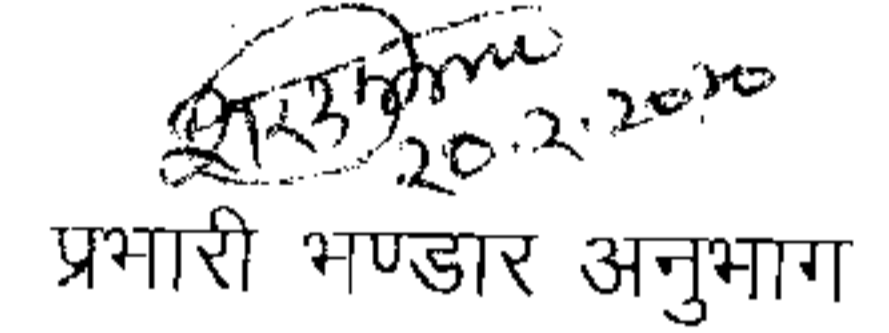 20.2.2020
प्रभारी भण्डार अनुभाग